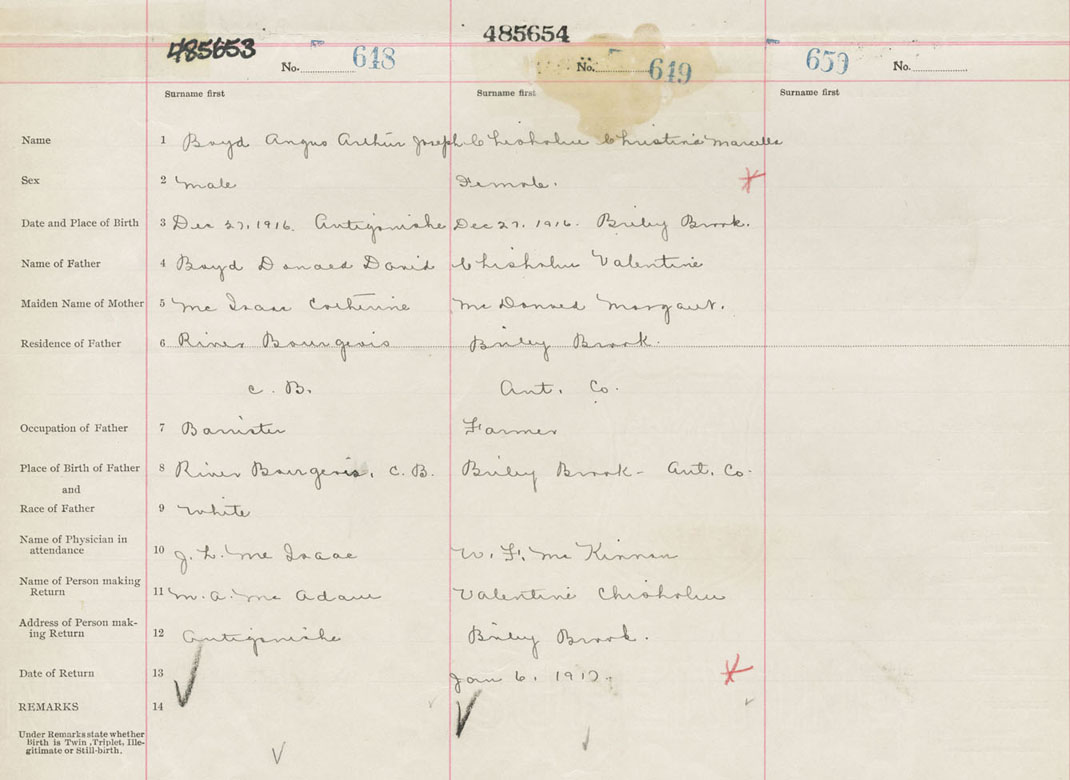 485653 485654
No. 648 No. 649 659 No.
Surname first Surname first Surname first
Name 1 Boyd Angus Arthur Joseph Chisholm Christina Marcella
Sex 2 Male Female.
Date and Place of Birth 3 Dec 27, 1916. Antigonishe Dec 27. 1916. Briley Brook.
Name of Father 4 Boyd Donald David Chisholm Valentine
Maiden Name of Mother 5 Mc Isaac Catherine Mc Donald Margaret.
Residence of Father 6 River Bourgeois Briley Brook.
C. B. Ant. Co.
Occupation of Father 7 Barrister Farmer
Place of Birth of Father 8 River Bourgeois, C. B. Briley Brook - Ant. Co.
and
Race of Father 9 White
Name of Physician in
attendance 10 J. L. Mc Isaac W. F. Mc Kinnon
Name of Person making
Return 11 M. A. Mc Adam Valentine Chisholm
Address of Person mak-
ing Return 12 Antigonishe Briley Brook.
Date of Return 13 Jan 6. 1917.
REMARKS 14
Under Remarks state whether
Birth is Twin, Triplet, Ille-
gitimate or Still-birth.